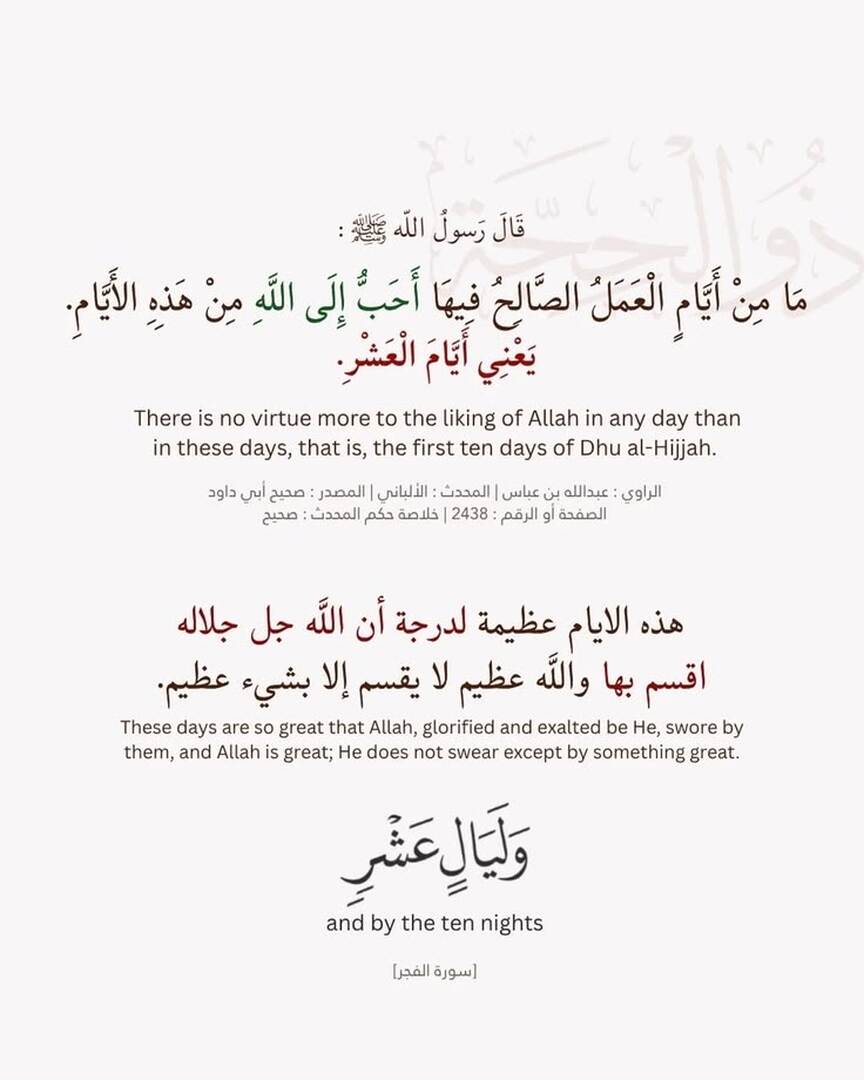 ذُوالْحِجَّة
قَالَ رَسولُ اللّه ﷺ :
مَا مِنْ أَيَّامٍ الْعَمَلُ الصَّالِحُ فِيهَا أَحَبُّ إِلَى اللَّهِ مِنْ هَذِهِ الأَيَّامِ.
يَعْنِي أَيَّامَ الْعَشْرِ.
There is no virtue more to the liking of Allah in any day than
in these days, that is, the first ten days of Dhu al-Hijjah.
الراوي : عبدالله بن عباس | المحدث : الألباني | المصدر : صحيح أبي داود
الصفحة أو الرقم : 2438 | خلاصة حكم المحدث : صحيح
هذه الايام عظيمة لدرجة أن اللَّه جل جلاله
اقسم بها واللَّه عظيم لا يقسم إلا بشيء عظيم.
These days are so great that Allah, glorified and exalted be He, swore by
them, and Allah is great; He does not swear except by something great.
وَلَيَالٍ عَشْرٍ
and by the ten nights
[سورة الفجر]